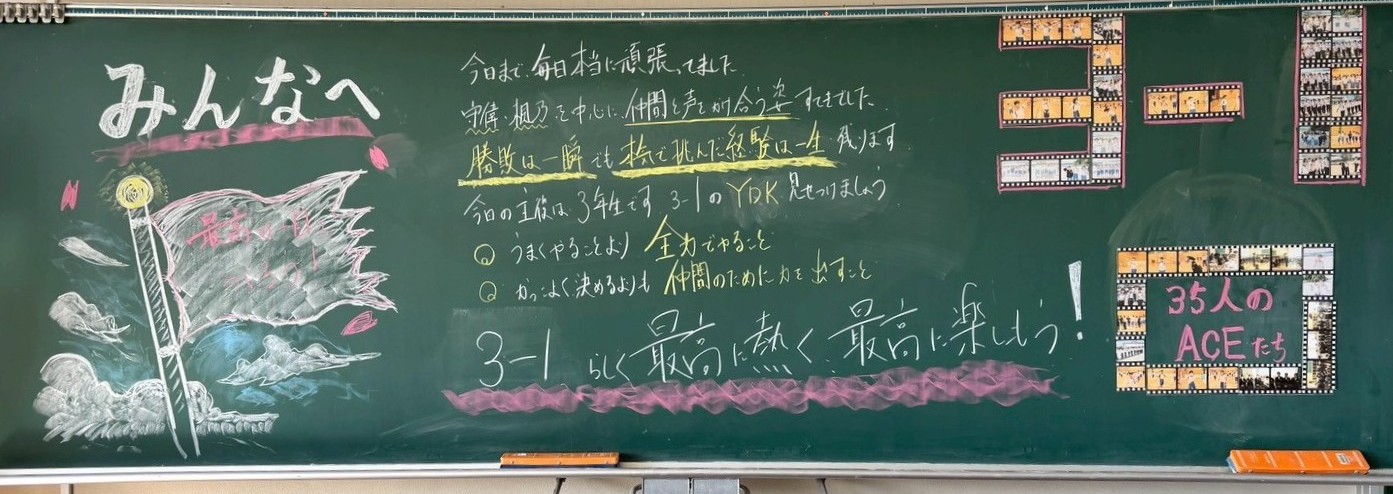 みんなへ
今日まで、毎日本当に頑張ってました
を中心に、仲間と声をかけ合う姿 すてきでした
勝敗は一瞬でも本気で挑んだ経験は一生 残ります
今日の主役は 3年生です 3-1の YDK 見せつけましょう
うまくやることより 全力でやること
かっこよく決めるよりも 仲間のために力を出すこと
3-1 らしく最高に熱く、最高に楽しもう!
最高
3-1
35人の
ACEたち